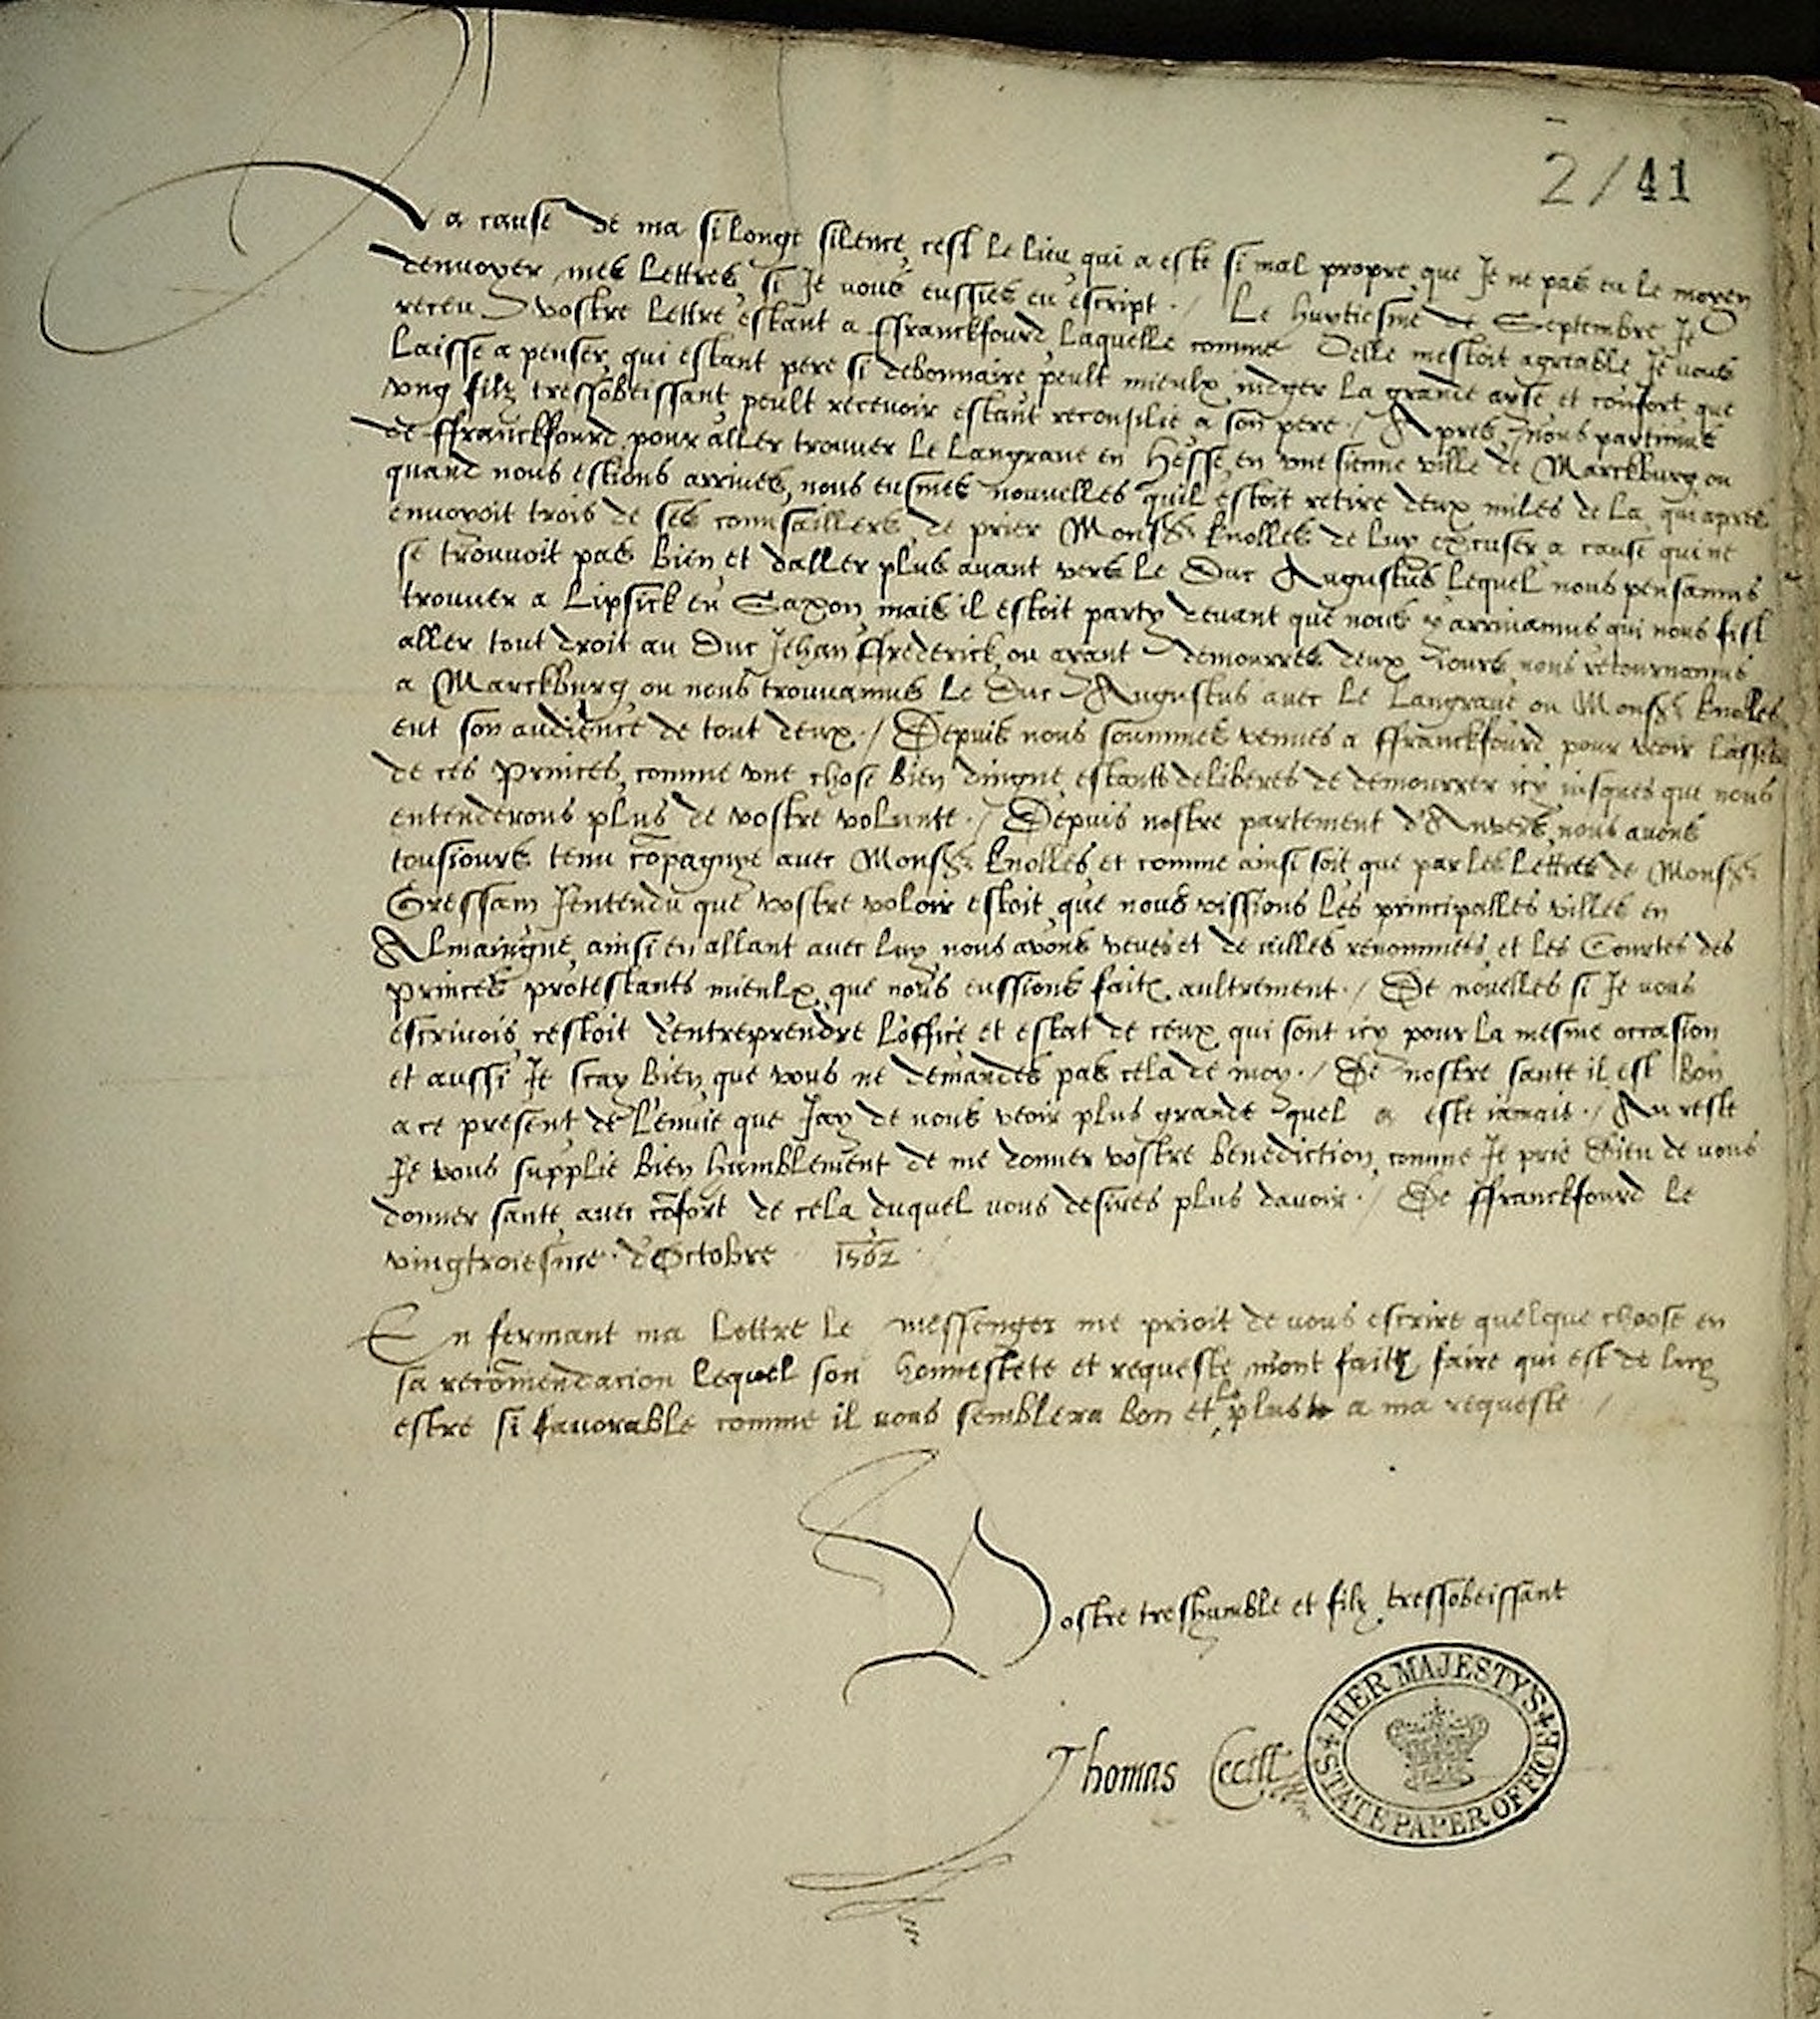 2/41
La cause de ma si longe silence, cest le lieu qui a este si mal propre, que Je ne pas eu le moyen
denvoyer mes lettres si Je vous eussies eu escript ./ Le huytiesme de Septembre, Je
receu vostre lettre estant a ffranckfourd, laquelle comme delle mestoit agreable Je vous
laisse a penser, qui estant pere si debonnaire peult mieulx iuger la grande ayse et confort que
ung filz tressobeissant peult recevoir estant reconsilie a son pere ./ Apres nous partimus
de ffranckfourd pour aller trouver le Langrave en Hesse, en une sienne ville de Marckburg, ou
quand nous estions arrives, nous eusmes nouvelles quil estoit retire deux miles de la, qui apres
envoyoit trois de ses counsaillers, de prier Monsr Knolles de luy excuser a cause qui ne
se trouvoit pas bien, et daller plus avant vers le Duc Augustus lequel nous pensamus
trouver a Lipsick en Saxon, mais il estoit party devant que nous y arrivamus qui nous fist
aller tout droit au Duc Jehan ffrederick, ou ayant demourres deux Jours, nous retournamus
a Marckburg, ou nous trouvamus le Duc Augustus avec le Langrave ou Monsr Knolles
eut son audience de tout deux ./ Depuis nous soummes venues a ffranckfourd pour veoir
de ces Princes, comme une chose bien dingne, estants deliberes de demourrer icy iusques que nous
entenderons plus de vostre volunte ./ Depuis nostre partement d'Anvers, nous avons
tousiours tenu cōpagnye avec Monsr Knolles, et comme ainsi soit que par les lettres de Monsr
Gressam J'entendu que vostre voloir estoit que nous vissions les principalles villes en
Almaingne, ainsi en allant avec luy nous avons veues et de villes renommees, et les Courtes des
princes protestants mieulx que nous eussions faitz aultrement ./ De novelles si Je vous
escrivois, cestoit d'entreprendre l'office et estat de ceux qui sont icy pour la mesme occasion
et aussi Je scay bien que vous ne demandes pas cela de moy ./ De nostre sante il est bon
a ce present, de l'envie que Jay de vous veoir plus grande quel a este iamais ./ Au reste
Je vous supplie bien humblement de me donner vostre benediction, comme Je prie Dieu de vous
donner sante, avec cōfort de cela duquel vous desires plus davoir ./ De ffranckfourd le
vingtroiesme d'Octobre 1562
En fermant ma lettre le messenger me prioit de vous escrire quelque choose en
sa recōmendacion lequel son honnestete et requeste m'ont faitz faire qui est de luy
estre si favorable comme il vous semblera bon et le plus a ma requeste /
Vostre treshumble et filz tressobeissant
Thomas Cecill
HER MAJESTY'S
STATE PAPER OFFICE